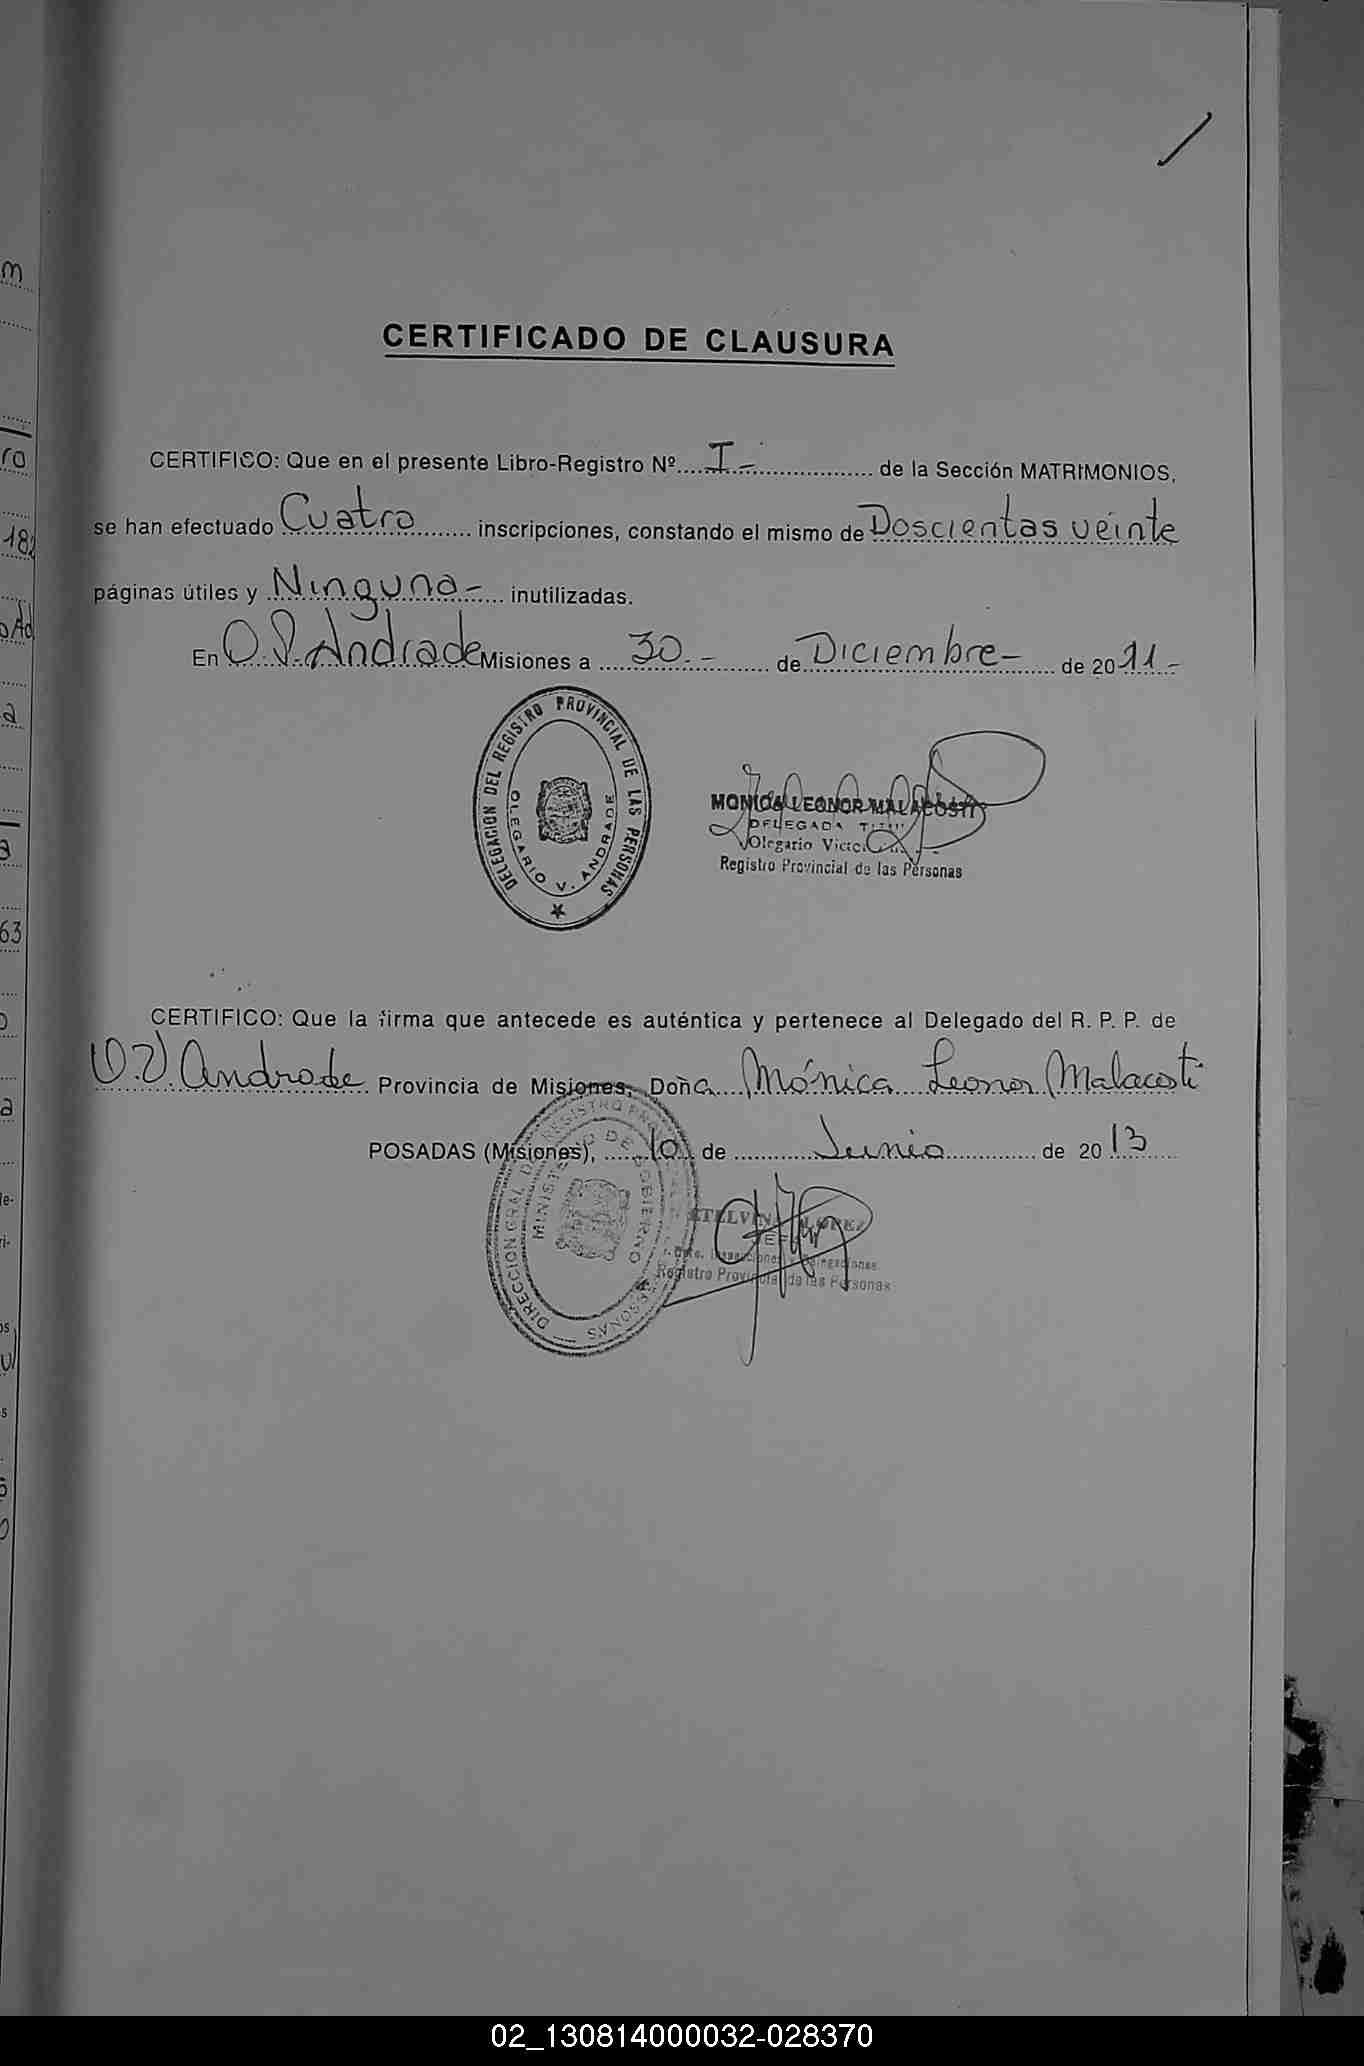 CERTIFICADO DE CLAUSURA
CERTIFICO: Que en el presente Libro-Registro Nº.... I-.................. de la Sección MATRIMONIOS,
se han efectuado Cuatro ....... inscripciones, constando el mismo de Doscientas veinte
páginas útiles y Ninguna- ... inutilizadas.
En O. V. Andrade Misiones a ... 30.- ....... de Diciembre- .... de 2011.-
DELEGACION DEL REGISTRO PROVINCIAL DE LAS PERSONAS
OLEGARIO V. ANDRADE
MONICA LEONOR MALACOSTI
DELEGADA
Olegario
Registro Provincial de las Personas
CERTIFICO: Que la firma que antecede es auténtica y pertenece al Delegado del R. P. P. de
O.V. Andrade. Provincia de Misiones, Doña Mónica Leonor Malacosti
POSADAS (Misiones), ..... 10 . de ......... Junio .......... de 2013
MINISTERIO DE GOBIERNO
LOPEZ
JEFE
Registro Provincial de las Personas
m
ro
182
a
a
63
a
02_130814000032-028370